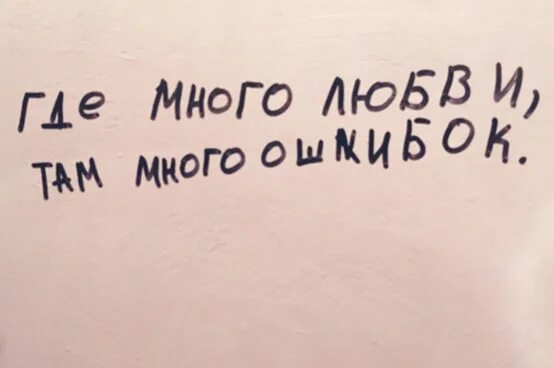 Где много любви,
там много ошибок.